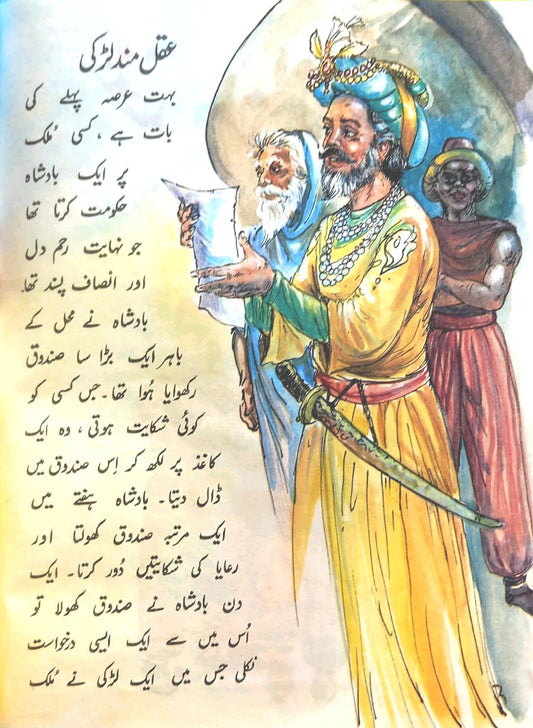 عقل مند لڑکی
بہت عرصہ پہلے کی
بات ہے ، کسی مُلک
پر ایک بادشاہ
حکومت کرتا تھا
جو نہایت رحم دل
اور انصاف پسند تھا۔
بادشاہ نے محل کے
باہر ایک بڑا سا صندوق
رکھوایا ہُوا تھا۔ جس کسی کو
کوئی شکایت ہوتی ، وہ ایک
کاغذ پر لکھ کر اِس صندوق میں
ڈال دیتا۔ بادشاہ ہفتے میں
ایک مرتبہ صندوق کھولتا اور
رعایا کی شکایتیں دُور کرتا۔ ایک
دن بادشاہ نے صندوق کھولا تو
اُس میں سے ایک ایسی درخواست
نکلی جس میں ایک لڑکی نے مُلک